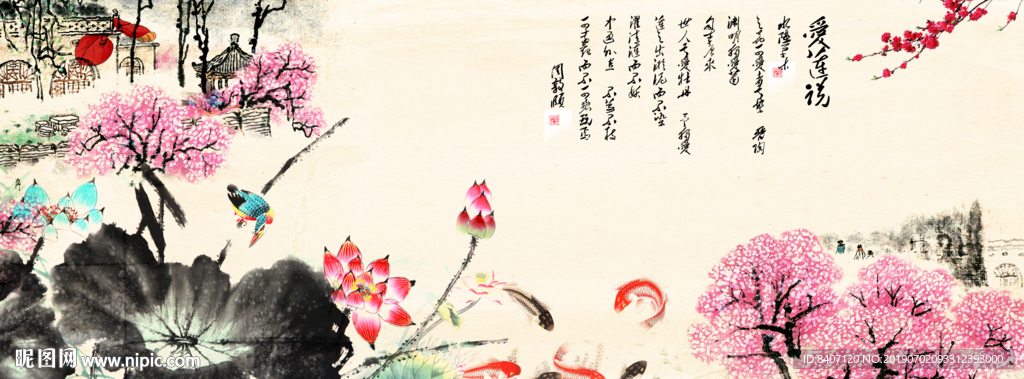 爱莲说
水陆草木
之花可爱者甚蕃 晋陶
渊明独爱菊
自李唐来
世人甚爱牡丹 予独爱
莲之出淤泥而不染
濯清涟而不妖
中通外直 不蔓不枝
周敦颐
昵图网 www.nipic.com
ID:8407120,NO:20190702093312393000